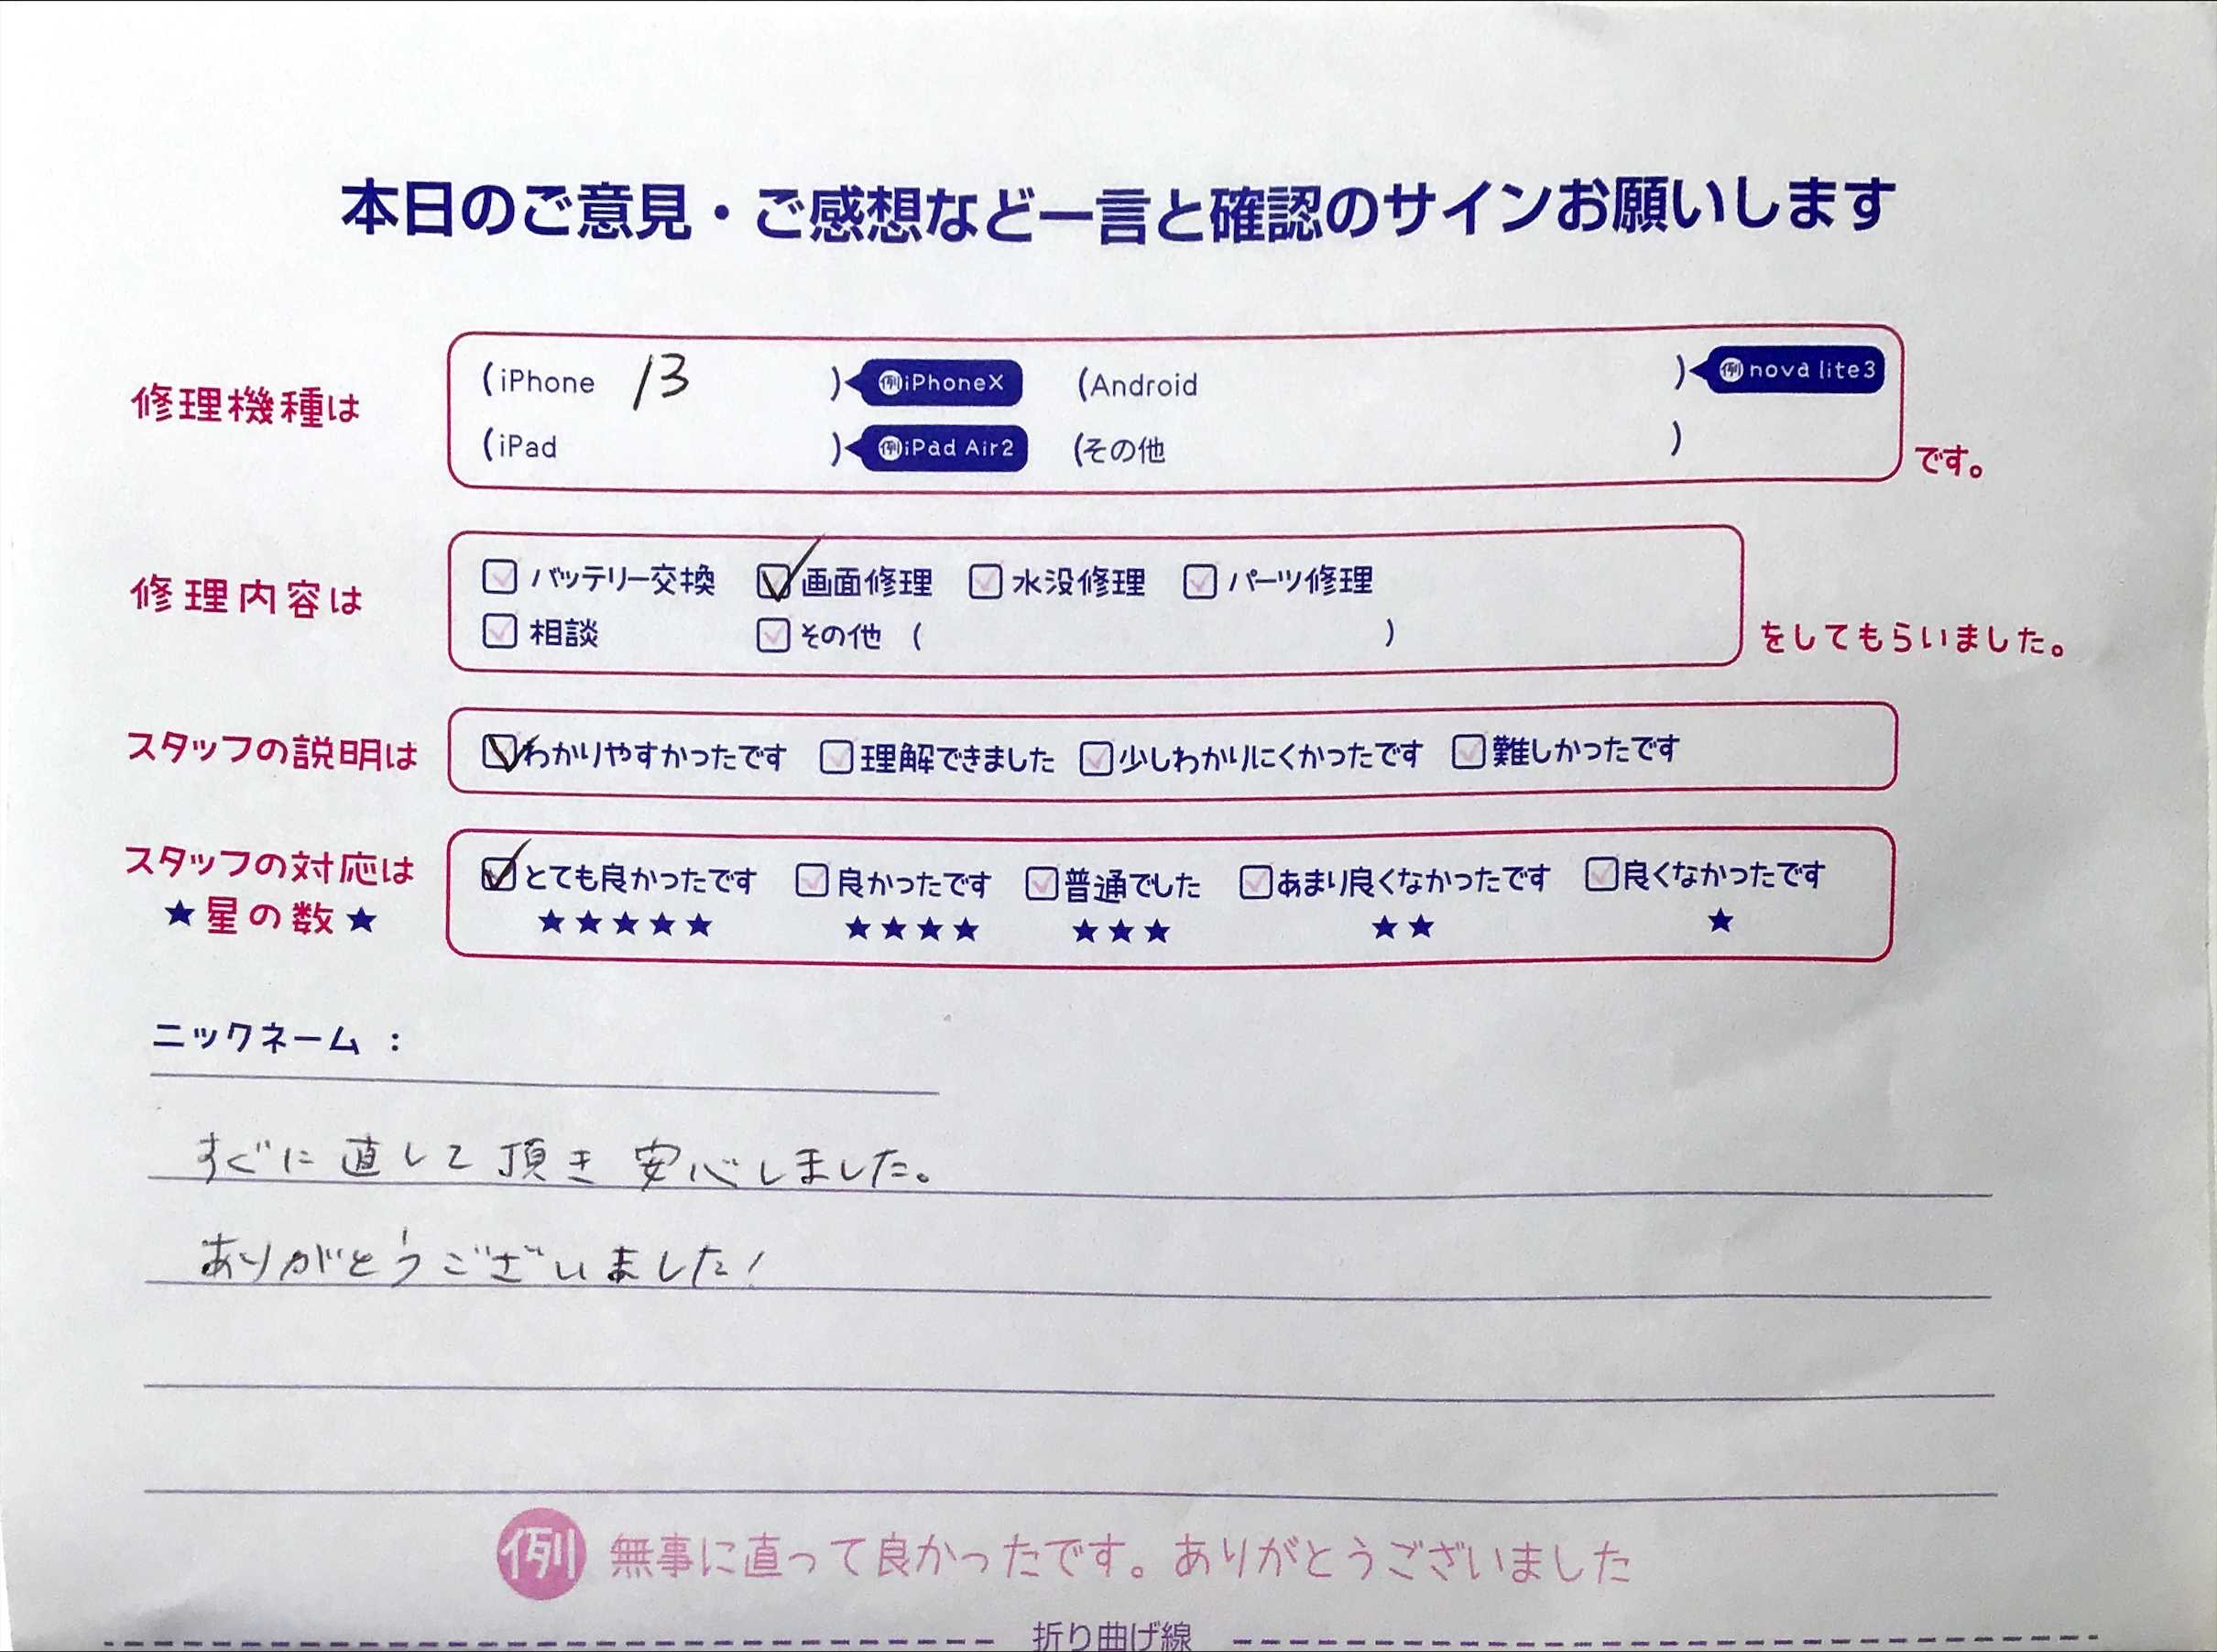 本日のご意見・ご感想など一言と確認のサインお願いします
修理機種は
(iPhone 13 ) 例iPhoneX (Android ) 例nova lite3
(iPad ) 例iPad Air2 (その他 )
です。
修理内容は
バッテリー交換 画面修理 水没修理 パーツ修理
相談 その他 ( )
をしてもらいました。
スタッフの説明は
わかりやすかったです 理解できました 少しわかりにくかったです 難しかったです
スタッフの対応は
★星の数★
とても良かったです 良かったです 普通でした あまり良くなかったです 良くなかったです
★★★★★ ★★★★ ★★★ ★★ ★
ニックネーム :
すぐに直して頂き安心しました。
ありがとうございました!
例 無事に直って良かったです。ありがとうございました
折り曲げ線